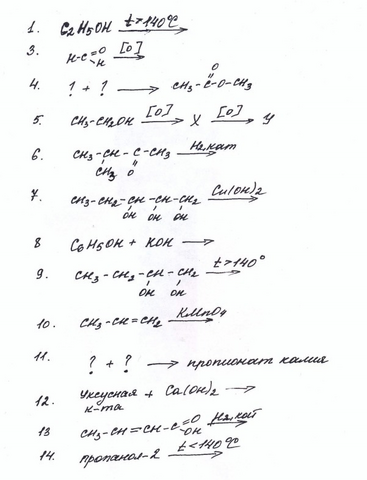 1. C2H5OH t>140°C
3. H-C=O H [O]
4. ? + ? → CH3-C-O-CH3 O
5. CH3-CH2OH [O] X [O] Y
6. CH3-CH-C-CH3 H2,кат CH3 O
7. CH3-CH2-CH-CH-CH2 Cu(OH)2 OH OH OH
8 C6H5OH + KOH →
9. CH3-CH2-CH-CH2 t>140° OH OH
10. CH3-CH=CH2 KMnO4
11. ? + ? → пропионат калия
12. Уксусная к-та + Ca(OH)2 →
13 CH3-CH=CH-C=O OH H2,кат
14. пропанол-2 t<140°C